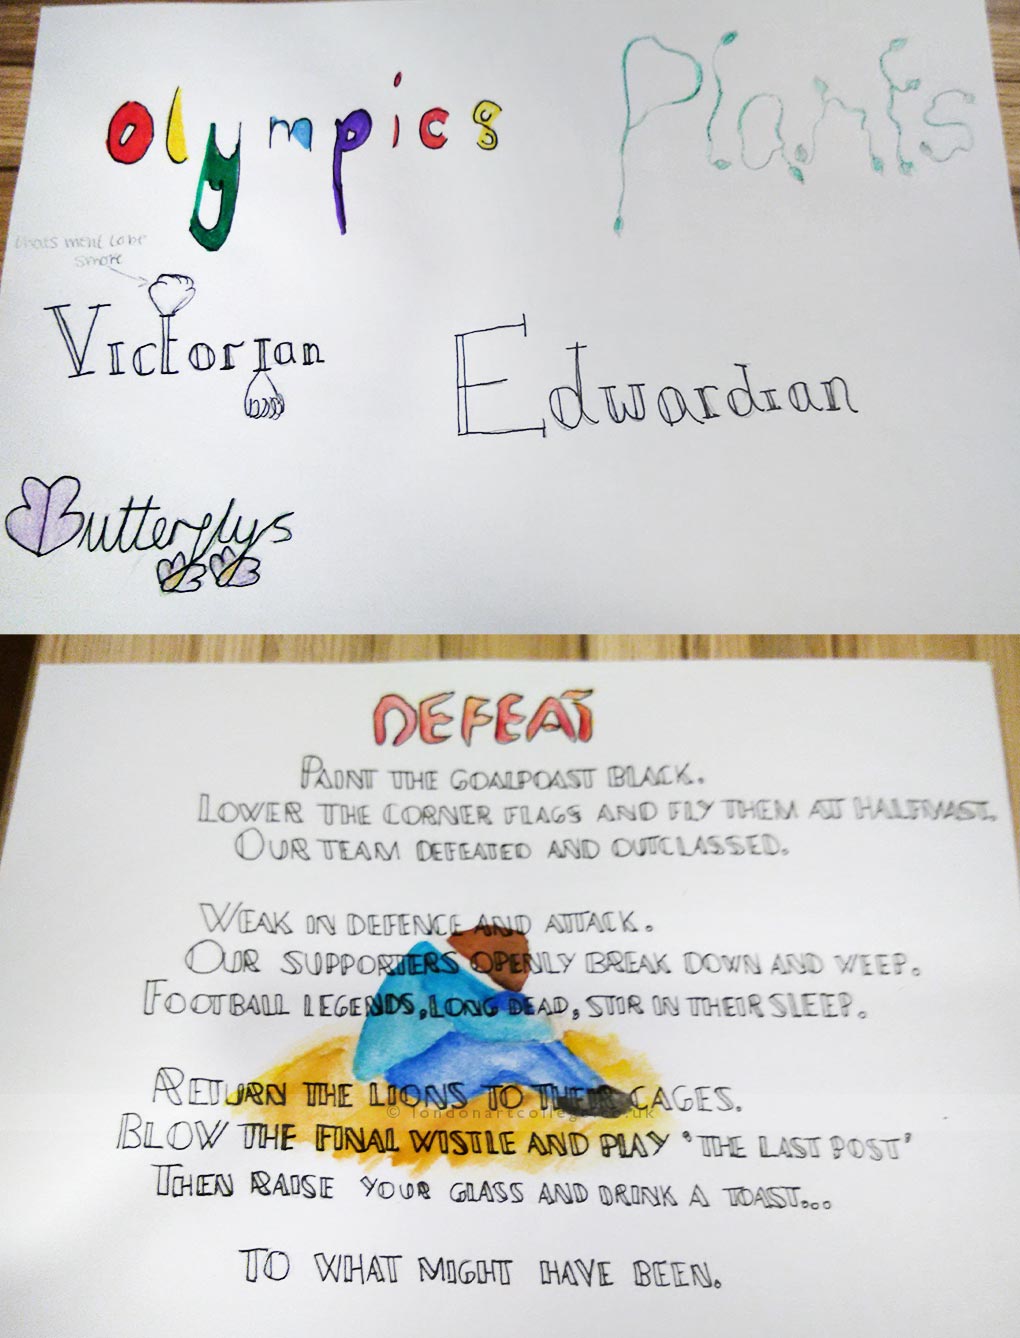 olympics
Plants
thats ment to be
smore
Victorian
Edwardian
Butterflys
DEFEAT
PAINT THE GOALPOAST BLACK.
LOWER THE CORNER FLAGS AND FLY THEM AT HALFMAST.
OUR TEAM DEFEATED AND OUTCLASSED.
WEAK IN DEFENCE AND ATTACK.
OUR SUPPORTERS OPENLY BREAK DOWN AND WEEP.
FOOTBALL LEGENDS, LONG DEAD, STIR IN THEIR SLEEP.
RETURN THE LIONS TO THEIR CAGES.
© londonartcollege.co.uk
BLOW THE FINAL WISTLE AND PLAY 'THE LAST POST'
THEN RAISE YOUR GLASS AND DRINK A TOAST...
TO WHAT MIGHT HAVE BEEN.